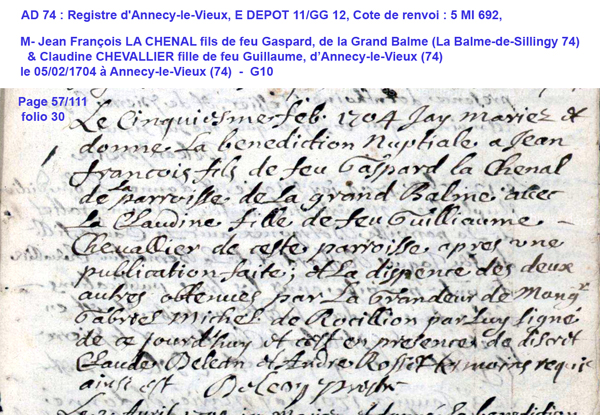 AD 74 : Registre d'Annecy-le-Vieux, E DEPOT 11/GG 12, Cote de renvoi : 5 MI 692,
M- Jean François LA CHENAL fils de feu Gaspard, de la Grand Balme (La Balme-de-Sillingy 74)
& Claudine CHEVALLIER fille de feu Guillaume, d'Annecy-le-Vieux (74)
le 05/02/1704 à Annecy-le-Vieux (74) - G10
Page 57/111
folio 30
Le Cinquiesme feb. 1704 Jay mariez et
donne La benediction Nuptiale a Jean
francois fils de feu Gaspard la Chenal
de la parroisse de La grand Balme avec
La Claudine fille de feu Guilliaume
Chevallier de ceste parroisse apres une
publication faite; et La dispence des deux
autres obtenues par La Grandeur de Mongr
Gabriel Michel de Rocillion par Luy signé
de ce jourdhuy et c'est en presence de discret
Claude Delean et Andre Rosset tesmoins requis
ainsi est